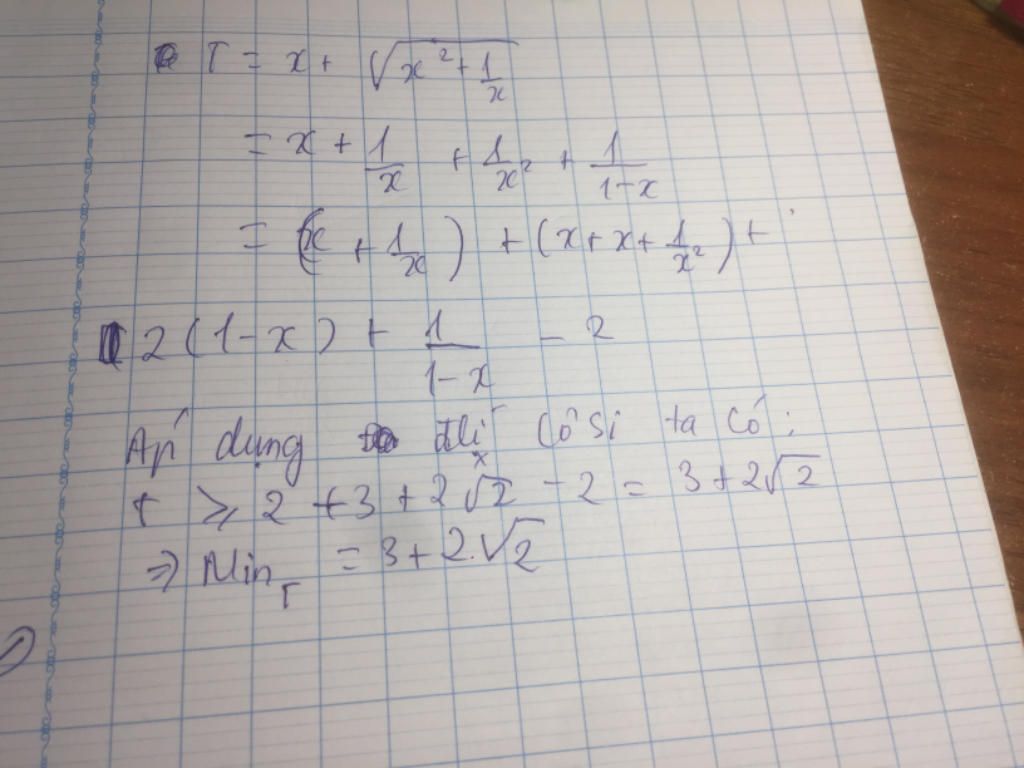 T = x + √(x² + 1/x)
= x + 1/x + 1/x² + 1/(1-x)
= (x + 1/x) + (x + x + 1/x²) +
2(1-x) + 1/(1-x) - 2
Áp dụng Côsi ta có:
T ≥ 2 + 3 + 2√2 - 2 = 3 + 2√2
⇒ Min_T = 3 + 2.√2